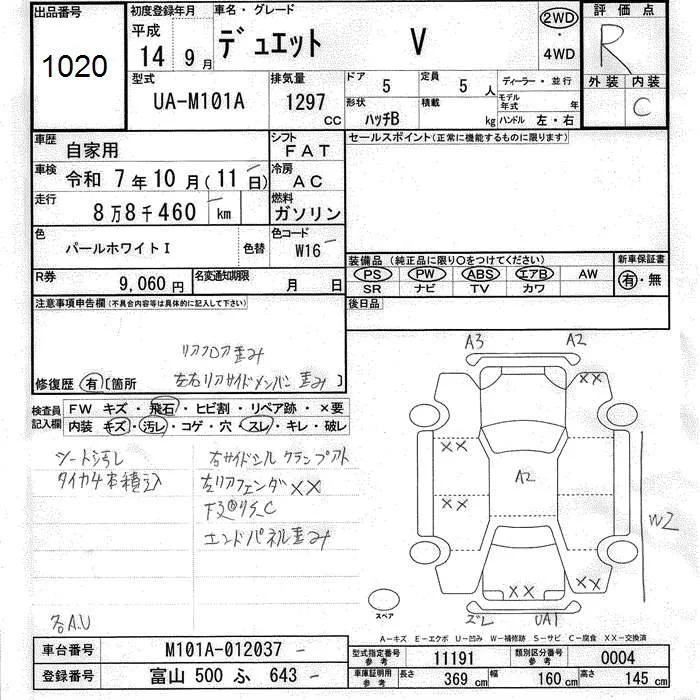 出品番号
1020
初度登録年月
平成
14 年 9 月
車名・グレード
デュエット V
2WD
・
4WD
評価点
R
外装 内装
C
型式
UA-M101A
排気量
1297
cc
ドア 5
定員 5 人
形状 ハッチB
積載 kg
ディーラー・並行
モデル年式 年
ハンドル 左・右
車歴 自家用
シフト FAT
車検 令和 7年10月(11日)
冷房 AC
走行 8万8千460 km
燃料 ガソリン
色 パールホワイトI 色替
色コード W16
R券 9,060円
名変通知期限 月 日
セールスポイント(正常に機能するものに限ります)
装備品(純正品に限り○をつけてください)
新車保証書
PS PW ABS エアB AW
SR ナビ TV カワ
有・無
後日品
注意事項申告欄(不具合内容等は具体的に記入して下さい)
リアフロア歪み
修復歴 有〔箇所 左右リアサイドメンバー歪み〕
検査員記入欄
FW キズ・飛石・ヒビ割・リペア跡・×要
内装 キズ・汚レ・コゲ・穴・スレ・キレ・破レ
シート汚レ
タイヤ4本積込
右サイドシルクランプアト
左リアフェンダXX
エンドパネル歪み
各A.U
A3 A2
XX
XX
A2
XX
W2
XX XX
スペア
ズレ UA1
A-キズ E-エクボ U-凹み W-補修跡 S-サビ C-腐食 XX-交換済
車台番号 M101A-012037
型式指定番号 参考 11191
類別区分番号 参考 0004
登録番号 富山 500 ふ 643
車庫証明用 参考 長さ 369 cm 幅 160 cm 高さ 145 cm